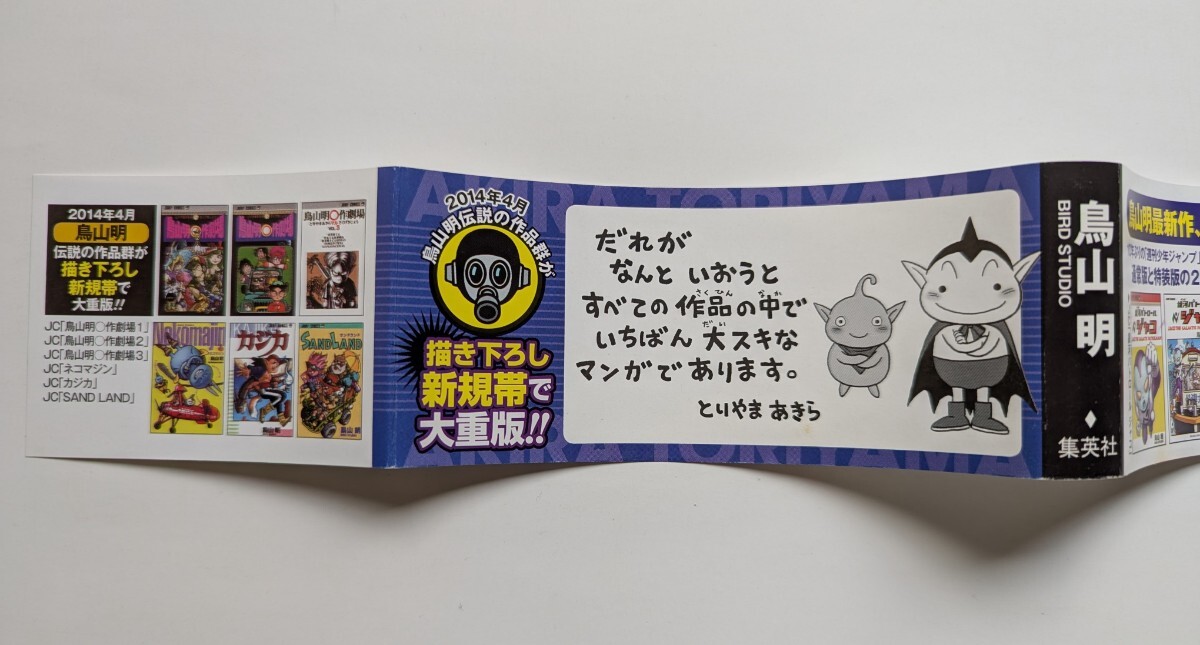 2014年4月
鳥山明
伝説の作品群が
描き下ろし
新規帯で
大重版!!
JC「鳥山明○作劇場1」
JC「鳥山明○作劇場2」
JC「鳥山明○作劇場3」
JC「ネコマジン」
JC「カジカ」
JC「SAND LAND」
鳥山明○作劇場
VOL.3
Nekomajin
カジカ
鳥山明
SANDLAND
鳥山明
AKIRA TORIYAMA
2014年4月
鳥山明伝説の作品群が
描き下ろし
新規帯で
大重版!!
だれが
なんと いおうと
すべての 作品の中で
さくひん なか
いちばん 大スキな
だい
マンガで あります。
とりやま あきら
AKIRA TORIYAMA
鳥山 明
BIRD STUDIO
集英社
鳥山明最新作、
通常版と特装版の2
ジャコ